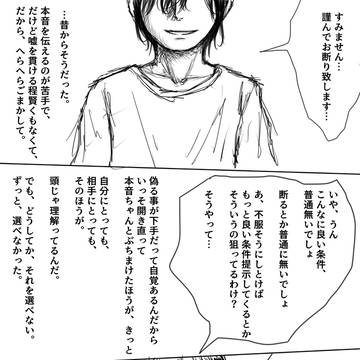 すみません…
謹んでお断り致します…
…昔からそうだった。
本音を伝えるのが苦手で、
だけど嘘を貫ける程賢くもなくて、
だから、へらへらごまかして。
いや、うん
こんなに良い条件、
普通無いでしょ
断るとか普通に無いでしょ
あ、不服そうにしとけば
もっと良い条件提示してくるとか
そういうの狙ってるわけ?
そうやって…
偽る事が下手だって自覚あるんだから
いっそ開き直って
本音ちゃんとぶちまけたほうが、きっと
自分にとっても、
相手にとっても、
そのほうが。
頭じゃ理解ってるんだ。
でも、どうしてか、それを選べない。
ずっと、選べなかった。